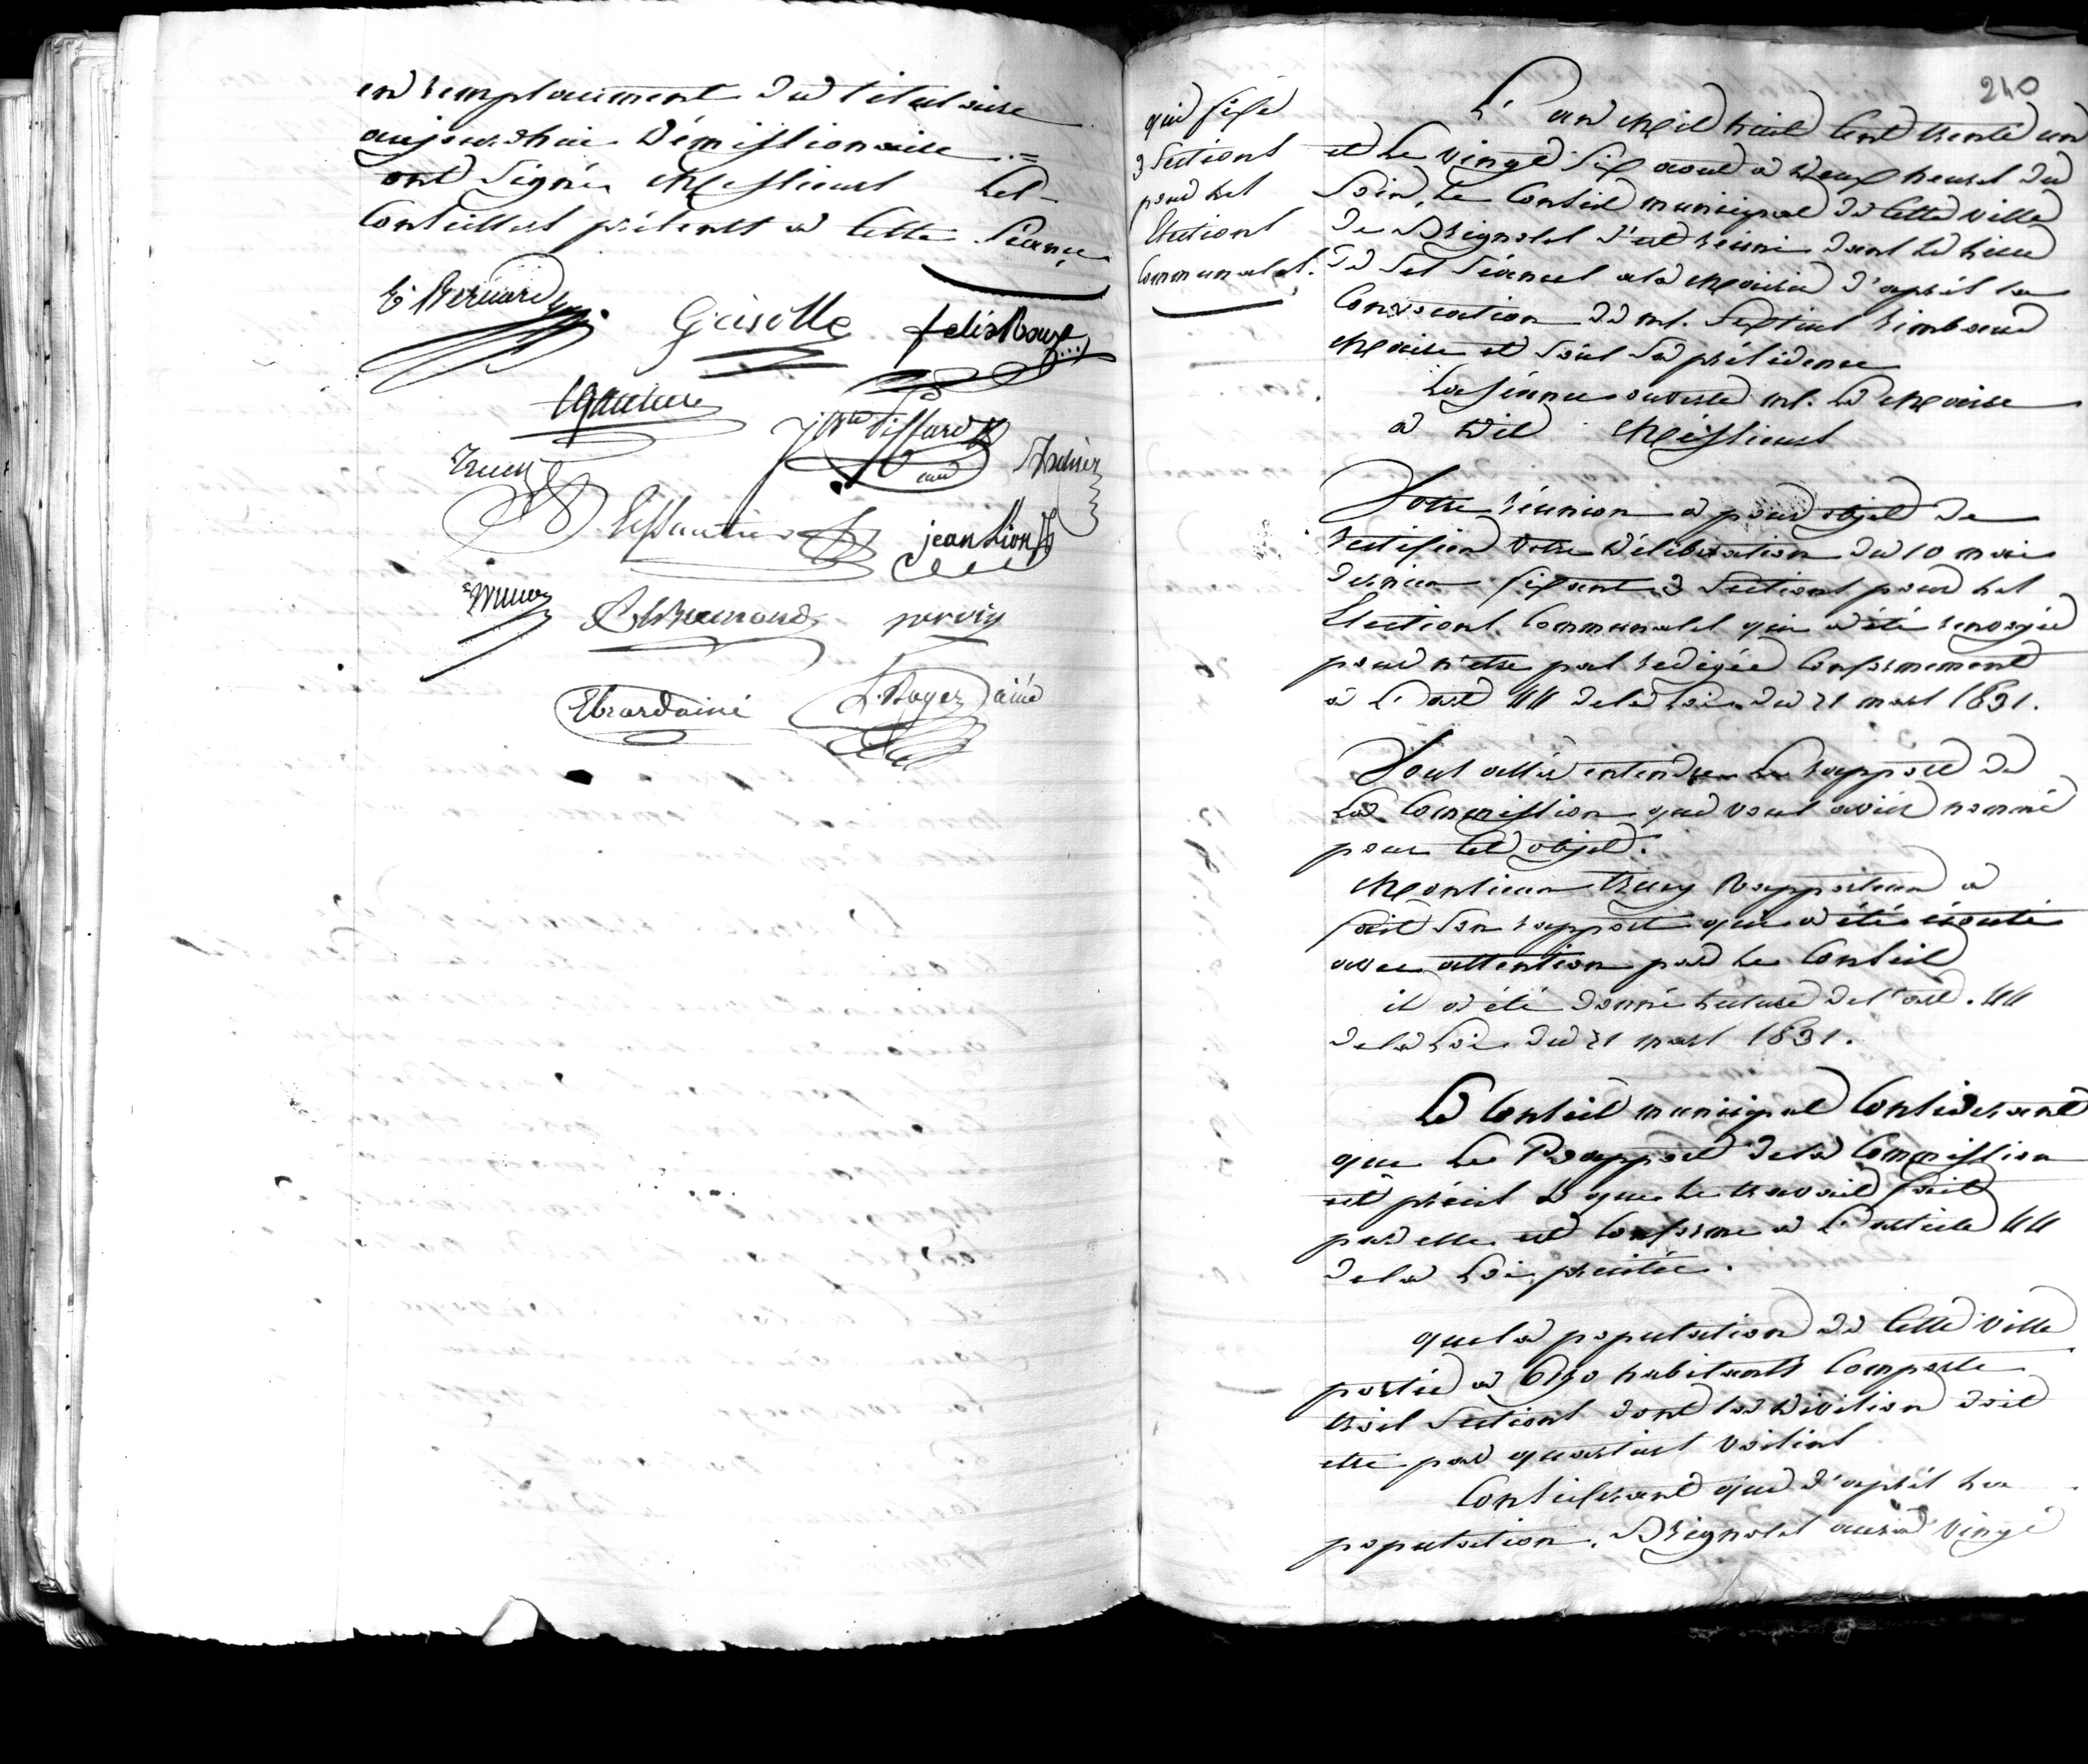 en remplacement du titulaire
aujourdhui démissionaire .=
ont signé Messieurs les
Conseillers présents a cette séance
E Bernard
Gasolle
felix Roux
Gautier
Jn Bte Diffard
cad
Trucy
Lessautier
jean Lion
Raynaud
Ebrard ainé
L. Boyer ainé
240
qui fixe
3 sections
pour les
Elections
Communales.
L'an mil huit cent trente un
et le vingt six aout a deux heures du
soir, le Conseil municipal de cette ville
de Brignoles s'est réuni dans le lieu
de ses séances a la mairie d'après la
Convocation de mr. Rimbaud
maire et sous sa présidence
La séance ouverte mr. le maire
a dit Messieurs
Votre réunion a pour objet de
rectifier votre délibération du 10 mai
dernier fixant 3 sections pour les
Elections Communales qui a été renvoyée
pour n'etre pas redigée conformement
a l'art 44 de la loi du 21 mars 1831.
Vous allés entendre le rapport de
la Commission que vous aviés nommé
pour cet objet.
Monsieur Trucy Rapporteur a
fait son rapport qui a été écouté
avec attention par le Conseil
il a été donné lecture de l'art. 44
de la loi du 21 mars 1831.
Le Conseil municipal Considerant
que le Rapport de la Commission
est précis & que le travail fait
par elle est conforme a l'article 44
de la loi précitée.
que la population de cette ville
portée a habitants comporte
trois sections dont la division doit
etre par quartiers voisins
Considerant que d'après la
population, Brignoles aura vingt